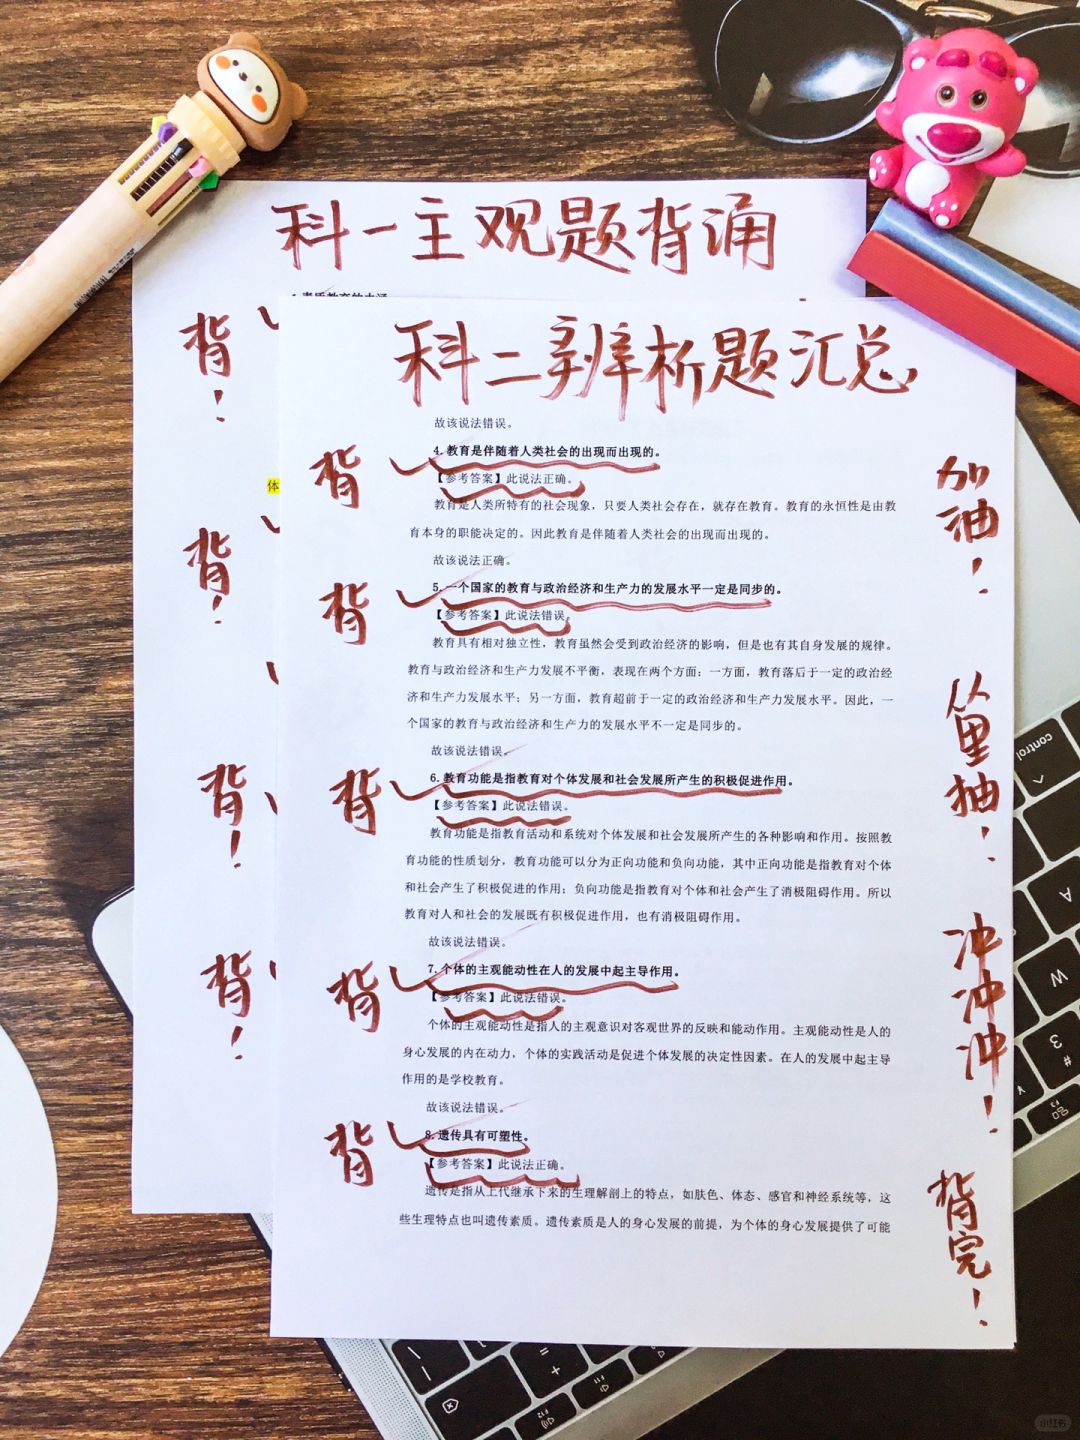 科一主观题背诵
背!
背!
背!
背!
体
科二辨析题汇总
故该说法错误。
背
4.教育是伴随着人类社会的出现而出现的。
【参考答案】此说法正确。
教育是人类所特有的社会现象，只要人类社会存在，就存在教育。教育的永恒性是由教
育本身的职能决定的。因此教育是伴随着人类社会的出现而出现的。
故该说法正确。
背
5.一个国家的教育与政治经济和生产力的发展水平一定是同步的。
【参考答案】此说法错误。
教育具有相对独立性，教育虽然会受到政治经济的影响，但是也有其自身发展的规律。
教育与政治经济和生产力发展不平衡，表现在两个方面：一方面，教育落后于一定的政治经
济和生产力发展水平；另一方面，教育超前于一定的政治经济和生产力发展水平。因此，一
个国家的教育与政治经济和生产力的发展水平不一定是同步的。
故该说法错误。
背
6.教育功能是指教育对个体发展和社会发展所产生的积极促进作用。
【参考答案】此说法错误。
教育功能是指教育活动和系统对个体发展和社会发展所产生的各种影响和作用。按照教
育功能的性质划分，教育功能可以分为正向功能和负向功能，其中正向功能是指教育对个体
和社会产生了积极促进的作用；负向功能是指教育对个体和社会产生了消极阻碍作用。所以
教育对人和社会的发展既有积极促进作用，也有消极阻碍作用。
故该说法错误。
背
7.个体的主观能动性在人的发展中起主导作用。
【参考答案】此说法错误。
个体的主观能动性是指人的主观意识对客观世界的反映和能动作用。主观能动性是人的
身心发展的内在动力，个体的实践活动是促进个体发展的决定性因素。在人的发展中起主导
作用的是学校教育。
故该说法错误。
背
8.遗传具有可塑性。
【参考答案】此说法正确。
遗传是指从上代继承下来的生理解剖上的特点，如肤色、体态、感官和神经系统等，这
些生理特点也叫遗传素质。遗传素质是人的身心发展的前提，为个体的身心发展提供了可能
加油!
从里抽!
冲冲冲!
背完!
control
A
W
3
#
F3
F12
小红书